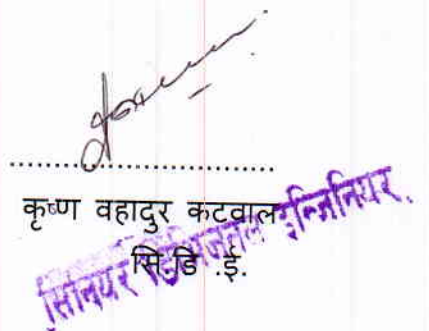 कृष्ण वहादुर कटवाल
सि.डि .ई.
सिनियर डिभिजनल इन्जिनियर.